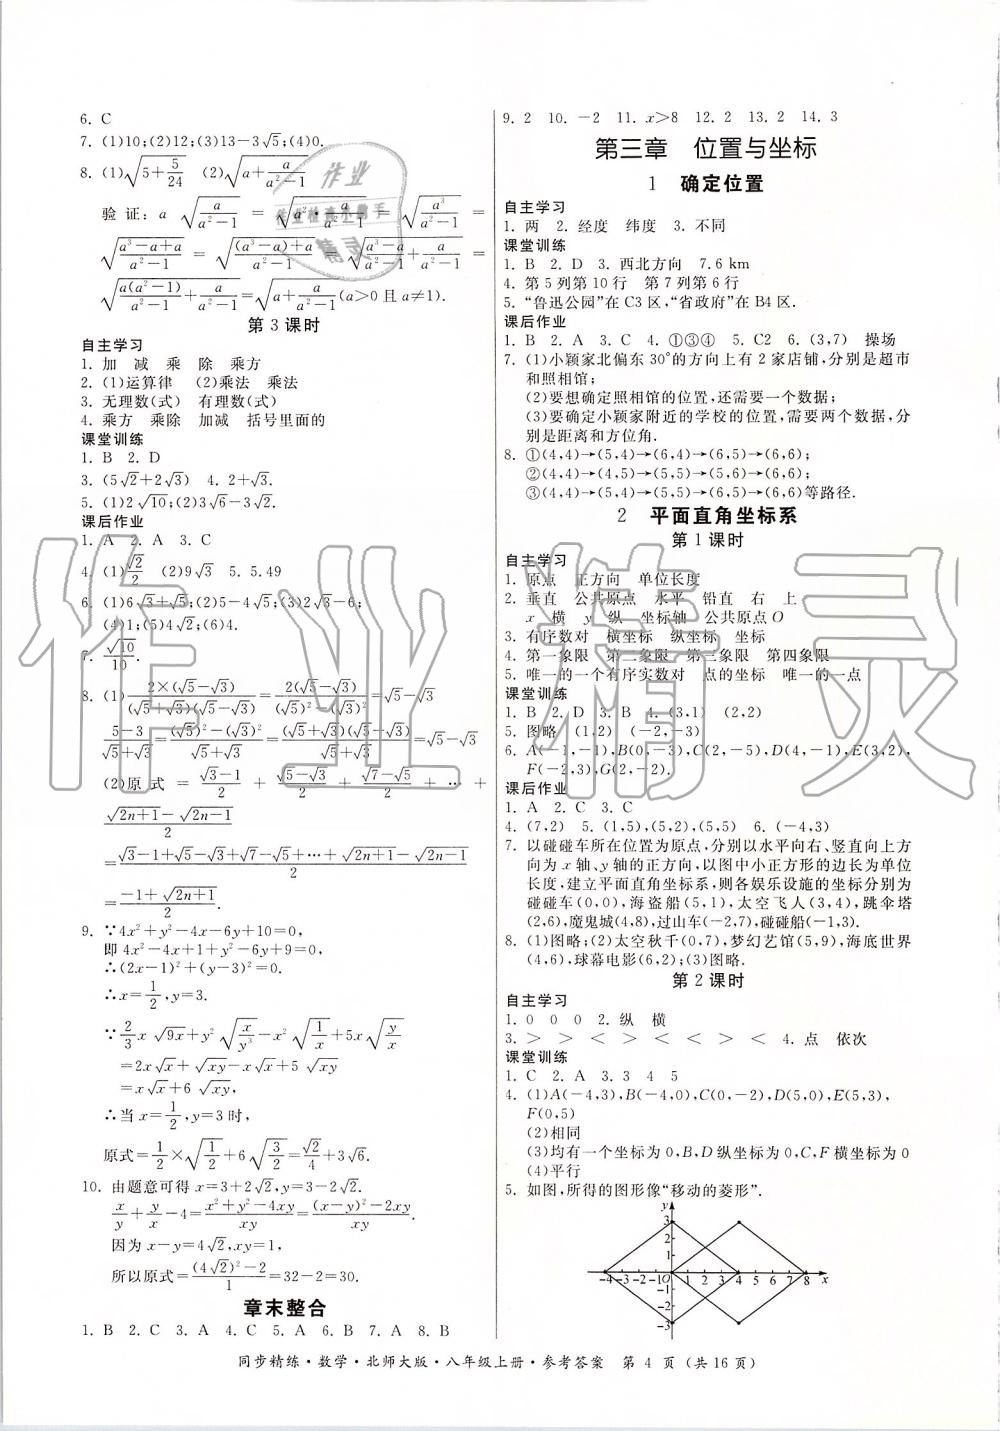 6. C
7. (1)10;(2)12;(3)13-3√5;(4)0.
8. (1)√(5+5/24)  (2)√(a+a/(a²-1))
验证:a√(a/(a²-1)) = √(a²·a/(a²-1)) = √(a³/(a²-1)) =
√((a³-a+a)/(a²-1)) = √(((a³-a)+a)/(a²-1)) = √((a³-a)/(a²-1)+a/(a²-1)) =
√(a(a²-1)/(a²-1)+a/(a²-1)) = √(a+a/(a²-1))(a>0且a≠1).
第3课时
自主学习
1. 加 减 乘 除 乘方
2. (1)运算律 (2)乘法 乘法
3. 无理数(式) 有理数(式)
4. 乘方 乘除 加减 括号里面的
课堂训练
1. B 2. D
3. (5√2+2√3) 4. 2+√3.
5. (1)2√10;(2)3√6-3√2.
课后作业
1. A 2. A 3. C
4. (1)√2/2 (2)9√3 5. 5.49
6. (1)6√3+√5;(2)5-4√5;(3)2√3-6;
(4)1;(5)4√2;(6)4.
7. √10/10.
8. (1)2×(√5-√3)/((√5+√3)(√5-√3))=2(√5-√3)/((√5)²-(√3)²)=√5-√3
(5-3)/(√5+√3)=((√5)²-(√3)²)/(√5+√3)=(√5+√3)(√5-√3)/(√5+√3)=√5-√3
(2)原式=(√3-1)/2+(√5-√3)/2+(√7-√5)/2+…+
(√(2n+1)-√(2n-1))/2
=(√3-1+√5-√3+√7-√5+…+√(2n+1)-√(2n-1))/2
=(-1+√(2n+1))/2.
9. ∵4x²+y²-4x-6y+10=0,
即4x²-4x+1+y²-6y+9=0.
∴(2x-1)²+(y-3)²=0.
∴x=1/2,y=3.
∵2/3 x√(9x)+y²√(x/y³)-x²√(1/x)+5x√(y/x)
=2x√x+√(xy)-x√x+5√(xy)
=x√x+6√(xy),
∴当x=1/2,y=3时,
原式=1/2×√(1/2)+6√(3/2)=√2/4+3√6.
10. 由题意可得x=3+2√2,y=3-2√2.
x/y+y/x-4=(x²+y²-4xy)/xy=((x-y)²-2xy)/xy.
因为x-y=4√2,xy=1,
所以原式=((4√2)²-2)/1=32-2=30.
章末整合
1. B 2. C 3. A 4. C 5. A 6. B 7. A 8. B
9. 2 10. -2 11. x>8 12. 2 13. 2 14. 3
第三章 位置与坐标
1 确定位置
自主学习
1. 两 2. 经度 纬度 3. 不同
课堂训练
1. B 2. D 3. 西北方向 7.6 km
4. 第5列第10行 第7列第6行
5. “鲁迅公园”在C3区,“省政府”在B4区.
课后作业
1. B 2. A 3. C 4. ①③④ 5. C2 6. (3,7) 操场
7. (1)小颖家北偏东30°的方向上有2家店铺,分别是超市
和照相馆;
(2)要想确定照相馆的位置,还需要一个数据;
(3)要确定小颖家附近的学校的位置,需要两个数据,分
别是距离和方位角.
8. ①(4,4)→(5,4)→(6,4)→(6,5)→(6,6);
②(4,4)→(4,5)→(5,5)→(5,6)→(6,6);
③(4,4)→(5,4)→(5,5)→(6,5)→(6,6)等路径.
2 平面直角坐标系
第1课时
自主学习
1. 原点 正方向 单位长度
2. 垂直 公共原点 水平 铅直 右 上
x 横 y 纵 坐标轴 公共原点O
3. 有序数对 横坐标 纵坐标 坐标
4. 第一象限 第二象限 第三象限 第四象限
5. 唯一的一个有序实数对 点的坐标 唯一的一点
课堂训练
1. B 2. D 3. B 4. (3,1) (2,2)
5. 图略 (1,2) (-2,-3)
6. A(-1,-1),B(0,-3),C(2,-5),D(4,-1),E(3,2),
F(-2,3),G(2,-2).
课后作业
1. A 2. C 3. C
4. (7,2) 5. (1,5),(5,2),(5,5) 6. (-4,3)
7. 以碰碰车所在位置为原点,分别以水平向右、竖直向上方
向为x轴、y轴的正方向,以图中小正方形的边长为单位
长度,建立平面直角坐标系,则各娱乐设施的坐标分别为
碰碰车(0,0),海盗船(5,1),太空飞人(3,4),跳伞塔
(2,6),魔鬼城(4,8),过山车(-2,7),碰碰船(-1,3).
8. (1)图略;(2)太空秋千(0,7),梦幻艺馆(5,9),海底世界
(4,6),球幕电影(6,2);(3)图略.
第2课时
自主学习
1. 0 0 0 2. 纵 横
3. > > < > < < > < 4. 点 依次
课堂训练
1. C 2. A 3. 3 4 5
4. (1)A(-4,3),B(-4,0),C(0,-2),D(5,0),E(5,3),
F(0,5)
(2)相同
(3)均有一个坐标为0,B,D纵坐标为0,C,F横坐标为0
(4)平行
5. 如图,所得的图形像“移动的菱形”.
y
3
2
1
-4 -3 -2 -1 O 1 2 3 4 5 6 7 8 x
-1
-2
-3
同步精练·数学·北师大版·八年级上册·参考答案 第4页(共16页)
作业精灵